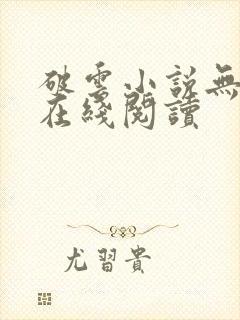 破雲小說無
在綫閱讀
尤習貴